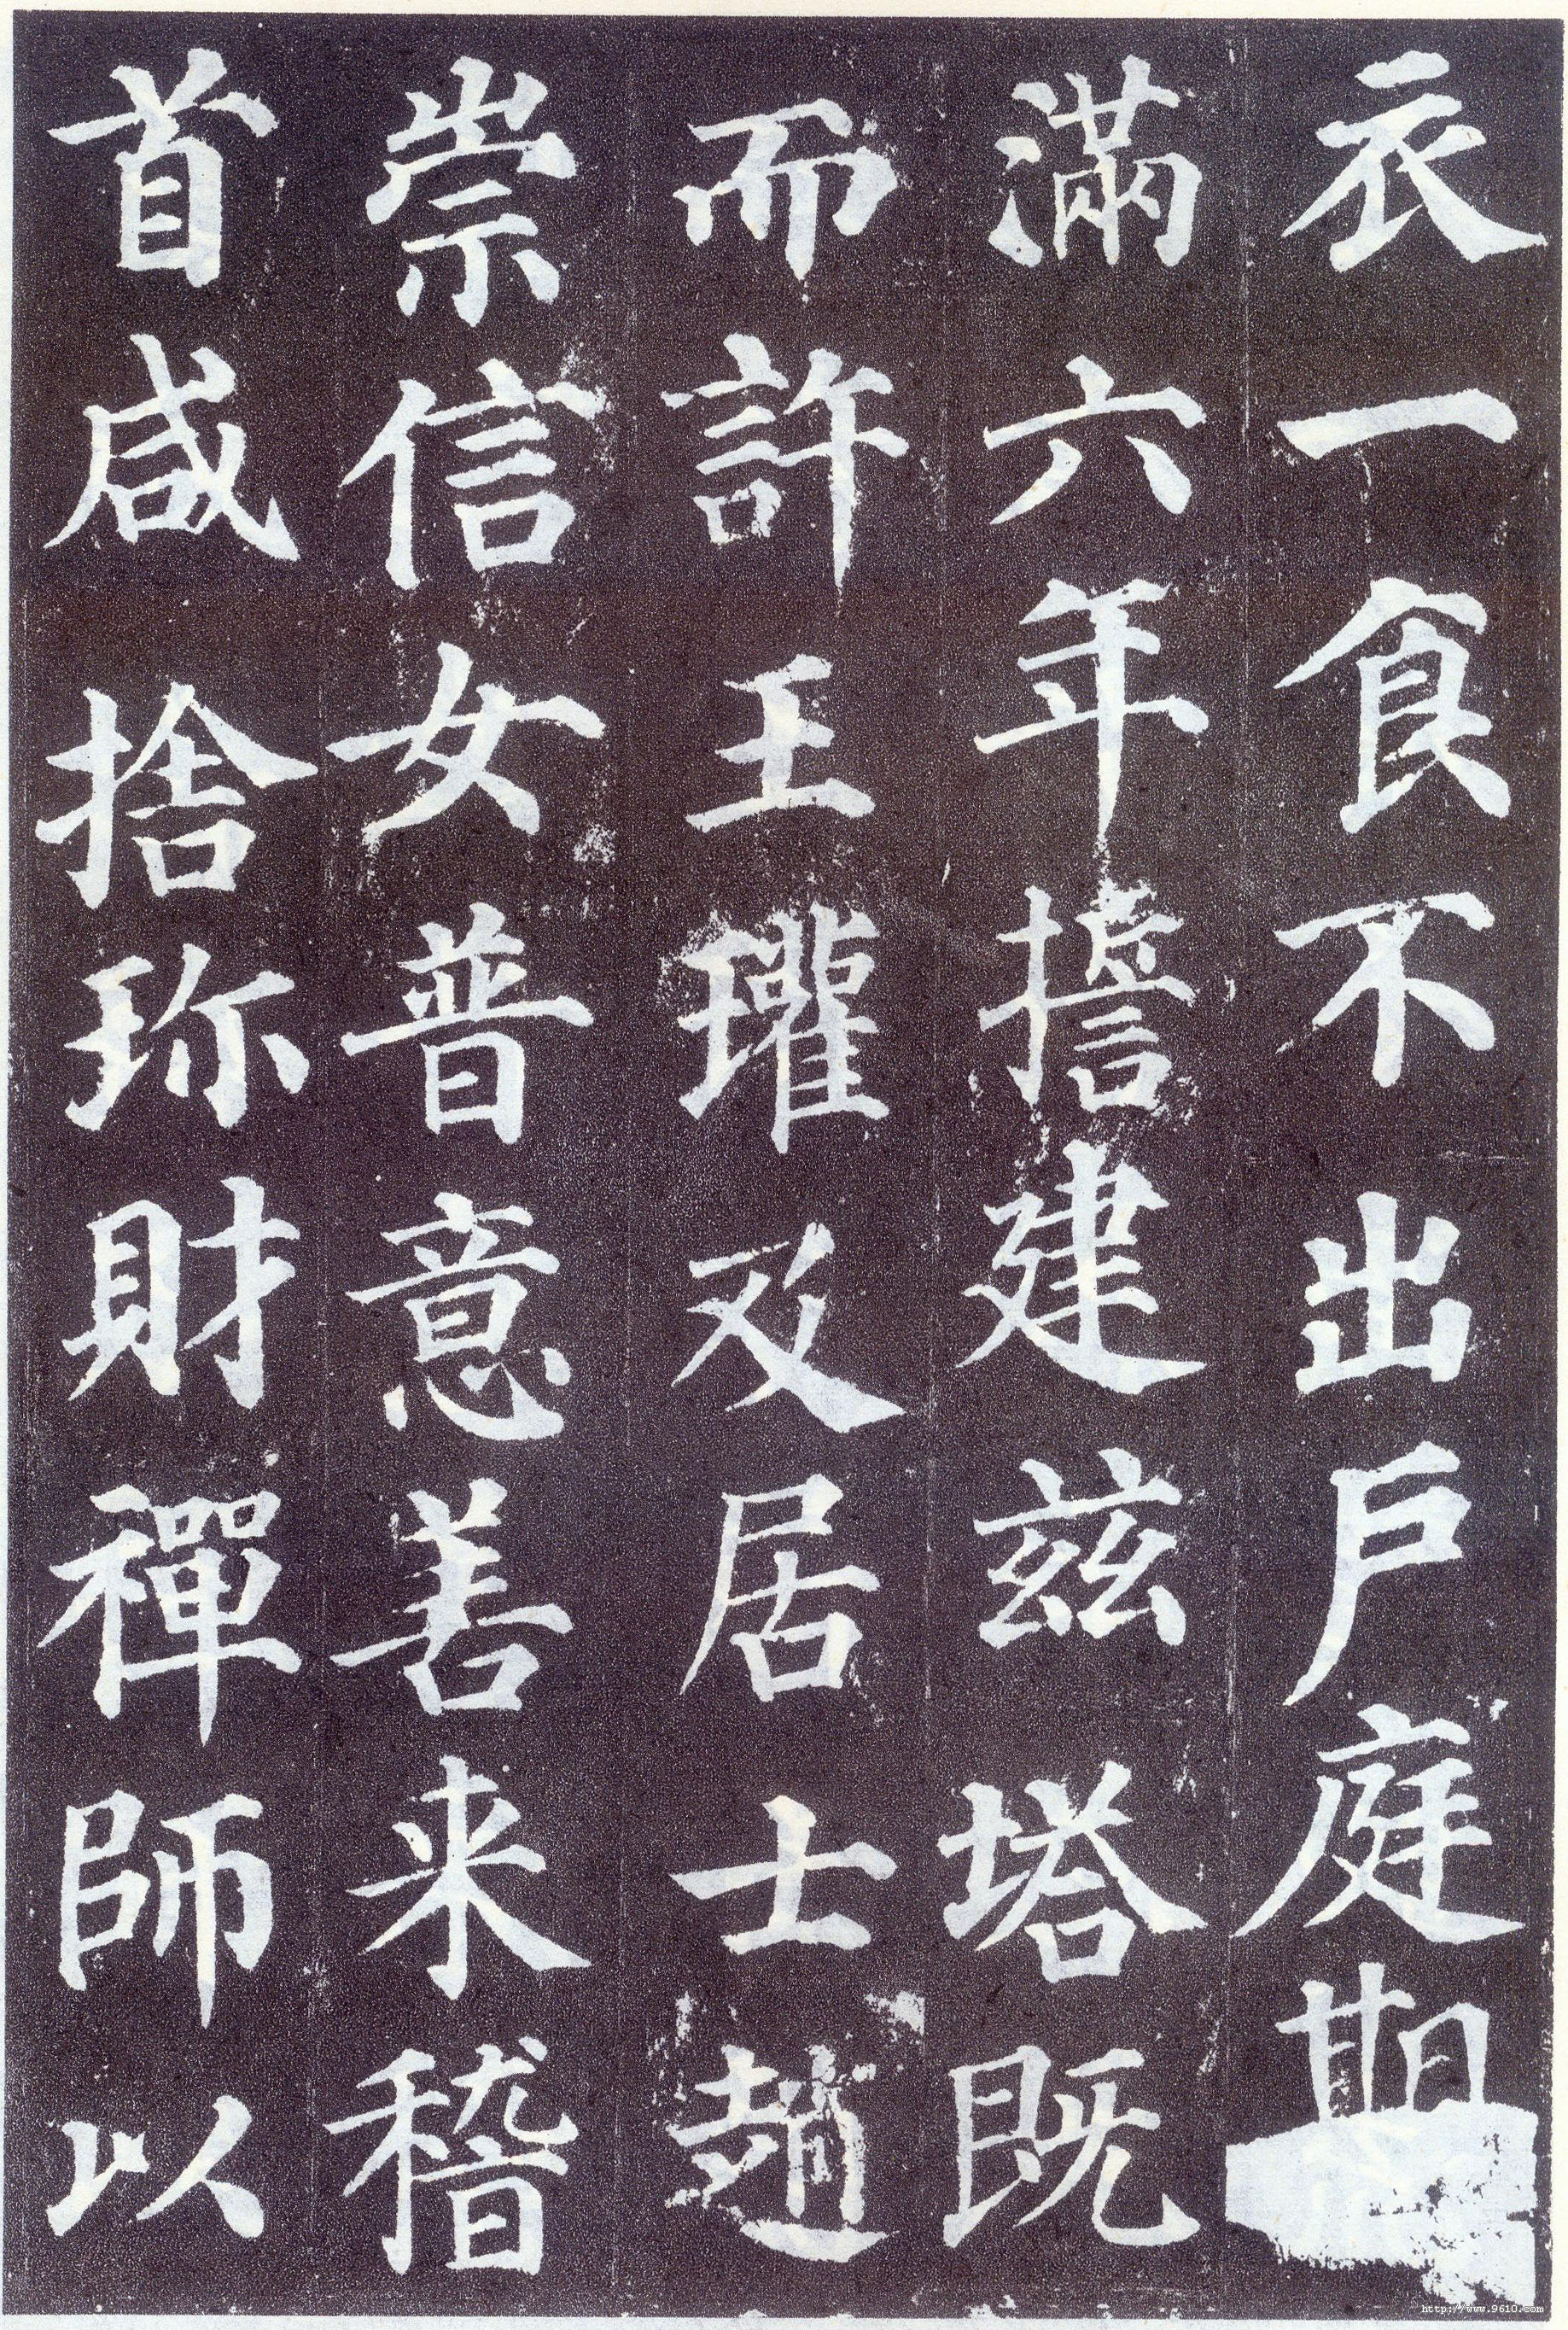 衣一食不出戶庭期
滿六年擔建兹塔既
而許王瓘及居士趙
崇信女普意善来稽
首咸捨珎財禪師以
http://www.9610.com